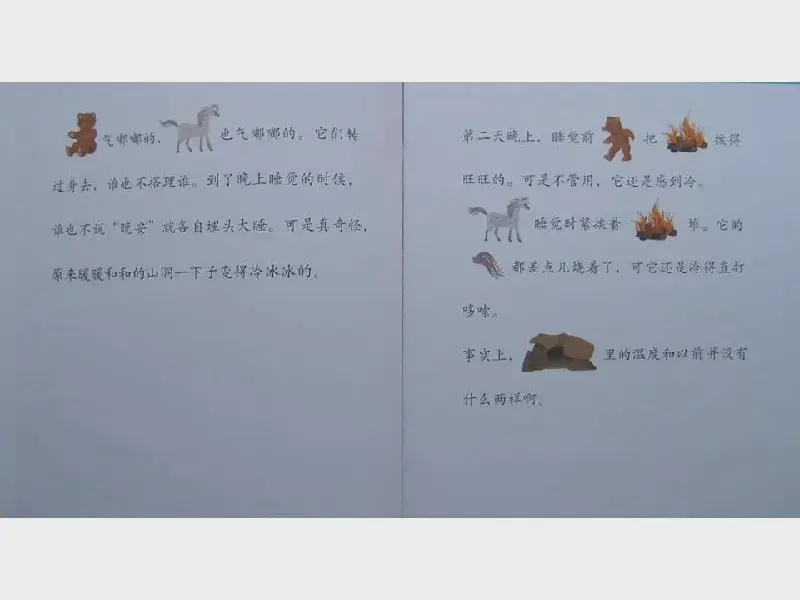 气嘟嘟的，也气嘟嘟的。它们转
过身去，谁也不搭理谁。到了晚上睡觉的时候，
谁也不说“晚安”就各自埋头大睡。可是真奇怪，
原来暖暖和和的山洞一下子变得冷冰冰的。
第二天晚上，睡觉前把拨得
旺旺的。可是不管用，它还是感到冷。
睡觉时紧挨着堆。它的
都差点儿烧着了，可它还是冷得直打
哆嗦。
事实上，里的温度和以前并没有
什么两样啊。